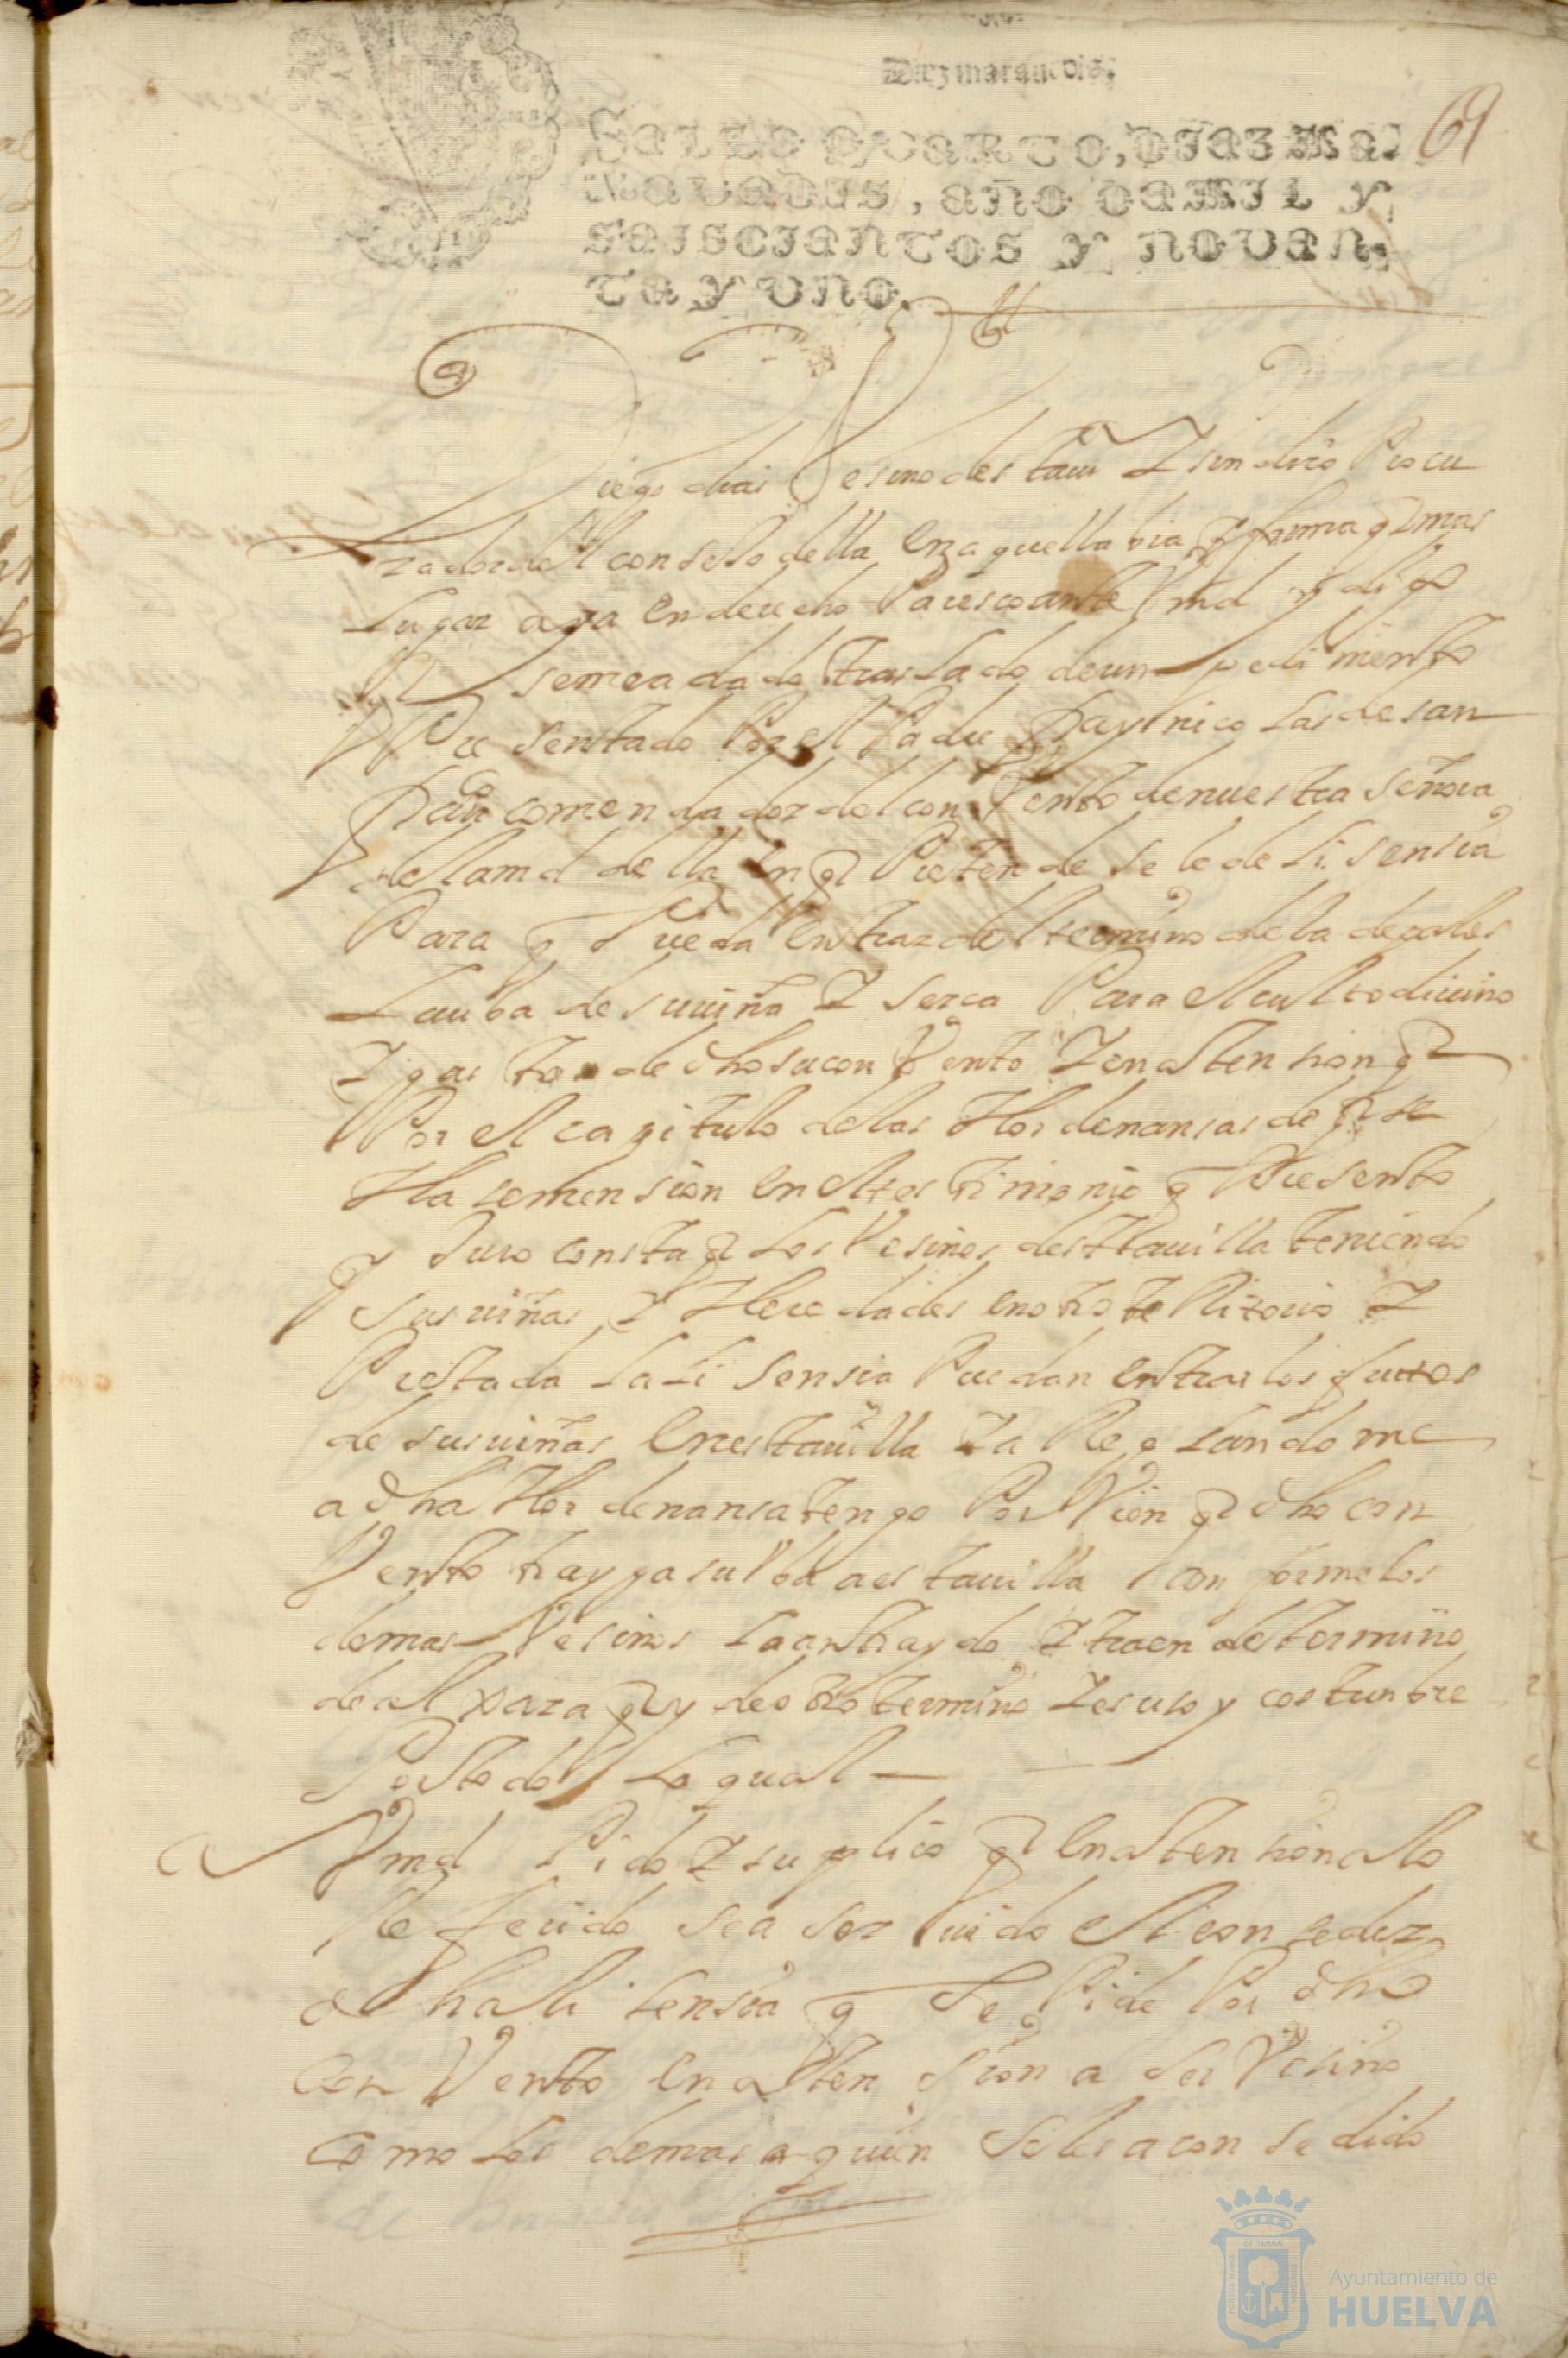 Diez marauedis.
69
SELLO QVARTO, DIEZ MA-
RAVEDIS, AÑO DE MIL Y
SEISCIENTOS Y NOVEN-
TA Y VNO.
Diego dias Vesino desta uª Y sindico Procu
rador del consejo della en aquella bia y forma q mas
Lugar aya en derecho Paresco ante Vmd y digo
q semea dado traslado de un pedimento
Presentado Por el Padre fray nicolas de san
Juan comendador del conVento de nuestra señora
de la md della en q Pretende se le de lisensia
Para q Pueda entrar del termino de la de
La uba de su uiña Y serca Para el culto diuino
Y gasto de dho su conVento Y en atension q
Por el capitulo de las Hordenansas de q se
Hase mension en el testimonio q Presento
Y Juro consta q Los Vesinos desta uilla teniendo
sus uiñas Y Heredades en otro territorio Y
Prestada La Lisensia Puedan entrar los frutos
de sus uiñas en esta uilla Y aReglandome
a dha Hordenansa tengo Por Vien q dho con
Vento trayga su Vba a esta uilla con forme los
demas Vesinos La an traydo Y traen del termino
de alxaraq y de otro termino Y es uso y costunbre
Por todo Lo qual
A Vmd Pido Y suplico q en atension a lo
Referido sea seruido el consedez
dha lisensia q se Pide Por dho
conVento en atension a ser Vesino
como Los demas a quien se les a consedido
Ayuntamiento de
HUELVA